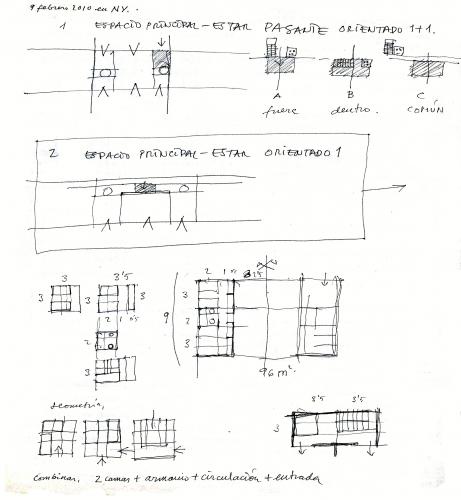 9 febrero 2010 en NY.
1 ESPACIO PRINCIPAL - ESTAR PASANTE ORIENTADO 1+1.
A B C
fuere dentro. COMÚN
2 ESPACIO PRINCIPAL - ESTAR ORIENTADO 1
3 3'5
3 3 3
2 1
2
3
2 1
3
2
3
9
96 m².
geometría,
3'5 3'5
3
combinar, 2 camas + armario + circulación + entrada